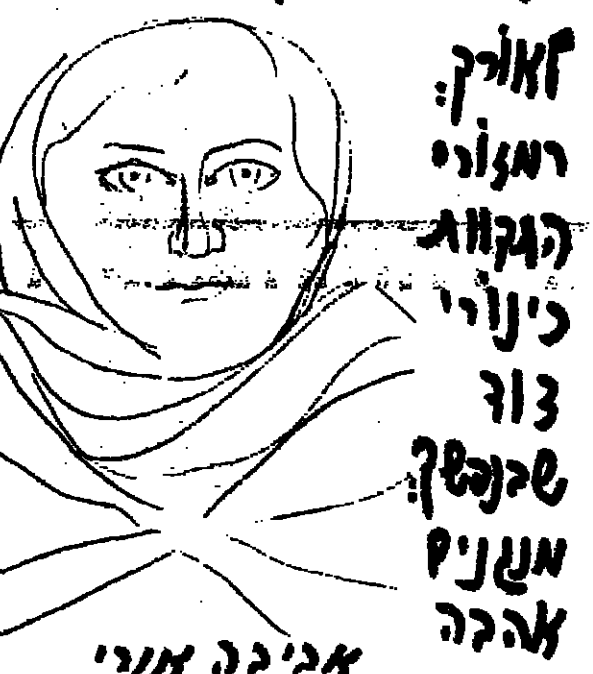 לאורך
רמזורי
התקוות
כינורי
דוד
שבנפשך
מנגנים
אהבה
אביבה אורי